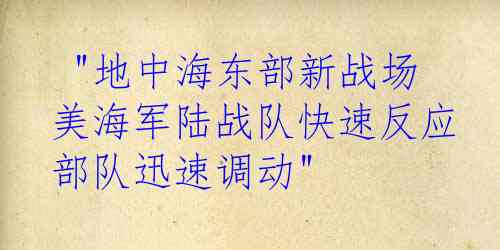 "地中海东部新战场
美海军陆战队快速反应
部队迅速调动"